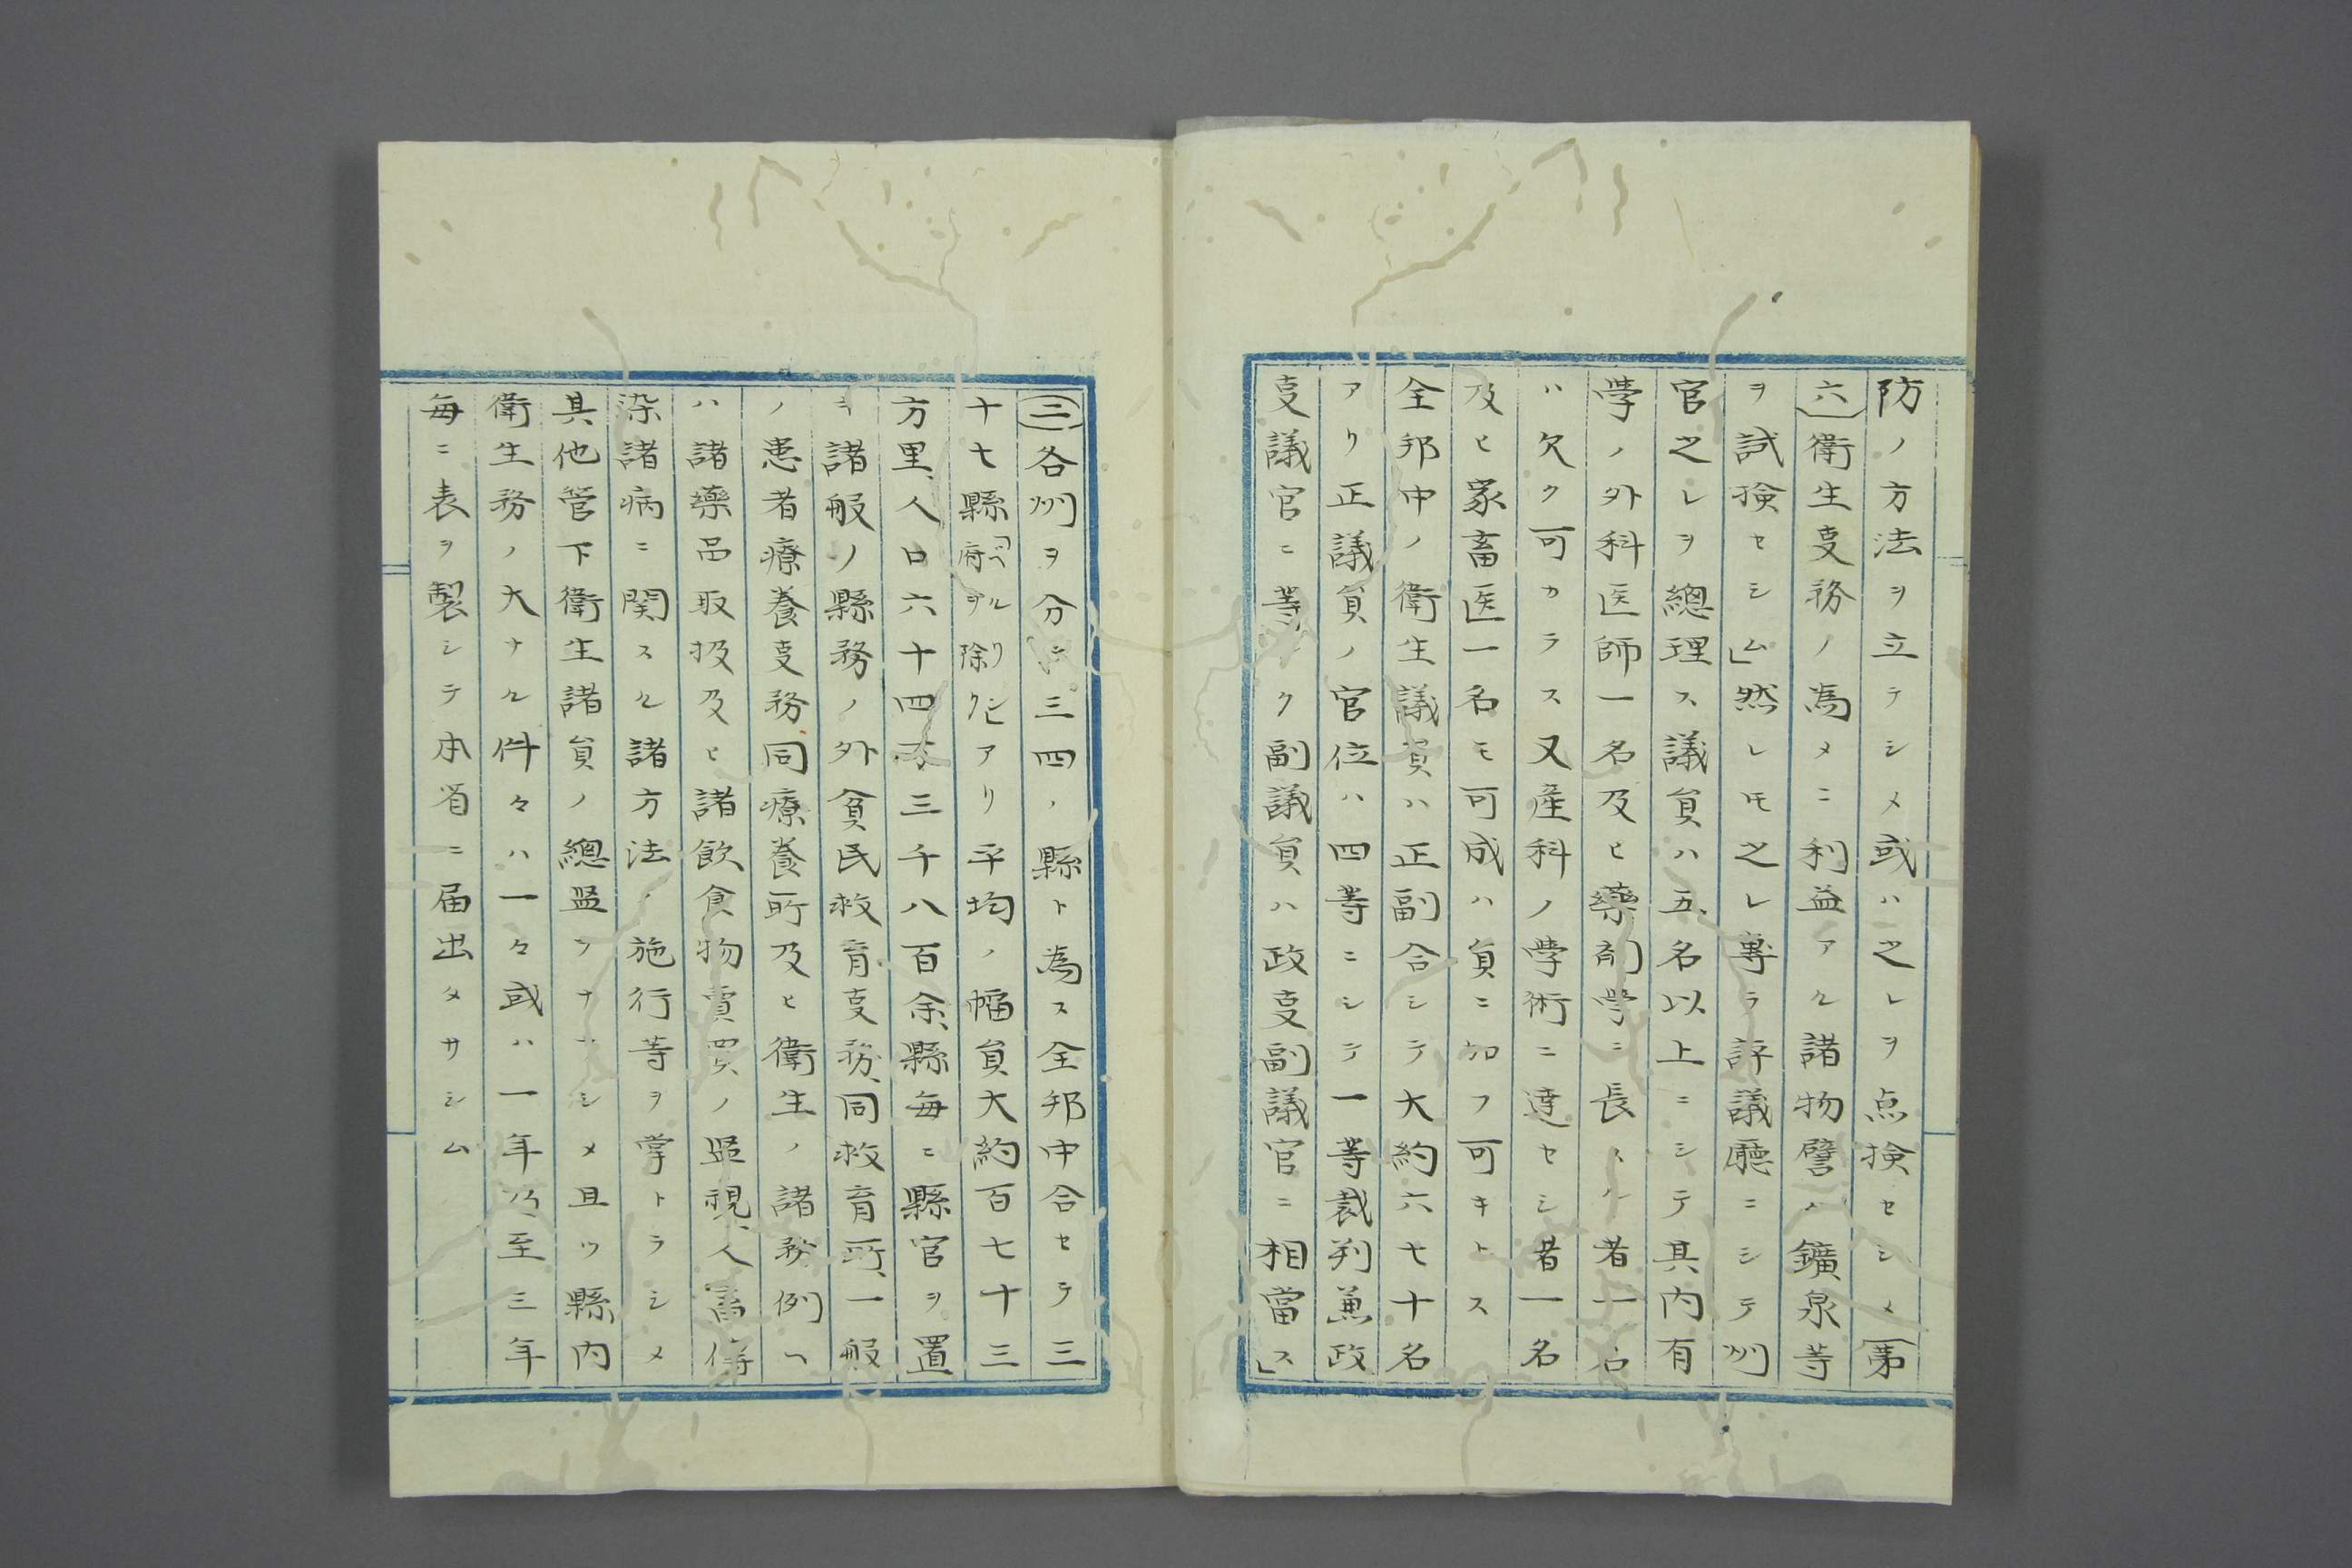 防ノ方法ヲ立テシメ或ハ之レヲ点検セシメ第
六衛生事務ノ為メニ利益アル諸物譬ハ鑛泉等
ヲ試検セシム」然レ𪜈之レ専ラ評議廳ニシテ州
官之レヲ總理ス議員ハ五名以上ニシテ其内有
學ノ外科医師一名及ヒ藥剤学ニ長スル者一名
ハ欠ク可カラス又産科ノ學術ニ達セシ者一名
及ヒ家畜医一名モ可成ハ員ニ加フ可キトス
全邦中ノ衛生議員ハ正副合シテ大約六七十名
アリ正議員ノ官位ハ四等ニシテ一等裁判兼政
事議官ニ等シク副議員ハ政事副議官ニ相當ス」
三各州ヲ分ニ三四ノ縣ト為ス全邦中合セテ三
十七縣「ベルリン」府ヲ除クアリ平均ノ幅員大約百七十三
方里、人口六十四万三千八百余、縣毎ニ縣官ヲ置
キ諸般ノ縣務ノ外貧民救育事務、同救育所、一般
ノ患者療養事務同療養所及ヒ衛生ノ諸務例ヘ
ハ諸藥品取扱及ヒ諸飲食物賣買ノ監視、人畜傳
染諸病ニ関スル諸方法ノ施行等ヲ掌トラシメ
其他管下衛生諸員ノ總監ヲナサシメ且ツ縣内
衛生務ノ大ナル件々ハ一々或ハ一年乃至三年
毎ニ表ヲ製シテ本省ニ届出タサシム